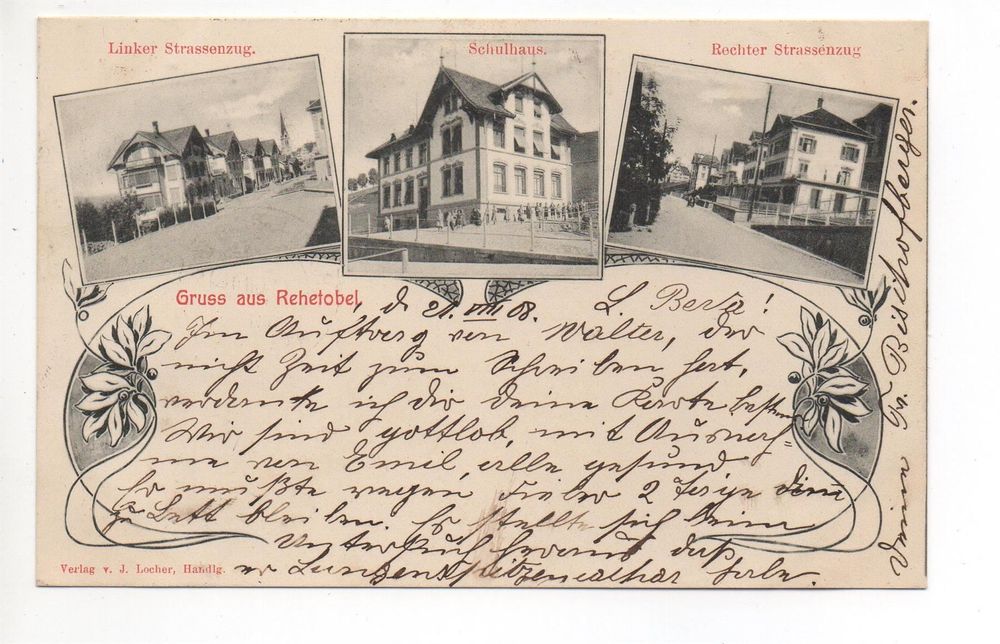 Linker Strassenzug.
Schulhaus.
Rechter Strassenzug
Gruss aus Rehetobel, d. 21. VIII 08. L. Berta!
Im Auftrag von Walter, der
nicht Zeit zum Schreiben hat,
verdanke ich dir deine Karte bestens
Wir sind gottlob, mit Ausnah-
me von Emil, alle gesund,
Er mußte wegen Fieber 2 Tage
zu Bett bleiben. Es stellte sich beim
Untersuch heraus daß
er Lungenspitzenkatarrh habe.
Fr. Bischofberger.
Verlag v. J. Locher, Handlg.